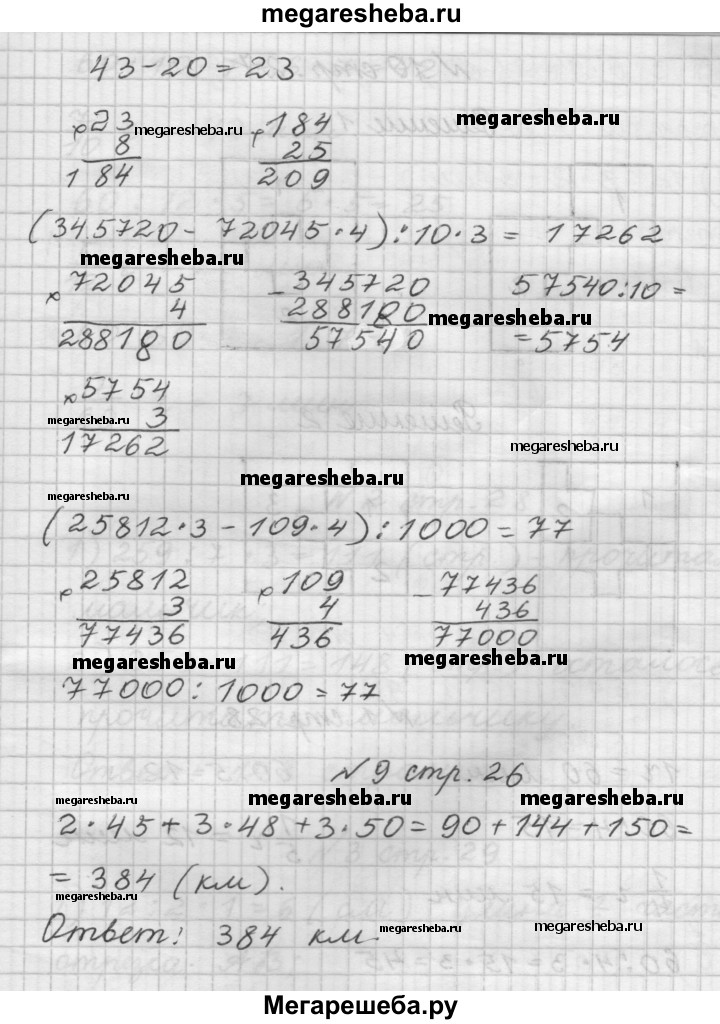 megaresheba.ru
43-20=23
× 23 megaresheba.ru × 184 megaresheba.ru
8 25
184 209
(345720 - 72045·4):10·3 = 17262
megaresheba.ru
× 72045 - 345720 57540:10=
4 288180 megaresheba.ru
288180 57540 =5754
× 5754
megaresheba.ru 3
17262 megaresheba.ru
megaresheba.ru
megaresheba.ru
(25812·3 - 109·4):1000=77
× 25812 × 109 - 77436
3 4 436
77436 436 77000
megaresheba.ru megaresheba.ru
77000:1000=77
№9 стр. 26
megaresheba.ru megaresheba.ru megaresheba.ru
2·45+3·48+3·50=90+144+150=
=384 (км).
megaresheba.ru
Ответ: 384 км. megaresheba.ru megaresheba.ru
Мегарешеба.ру